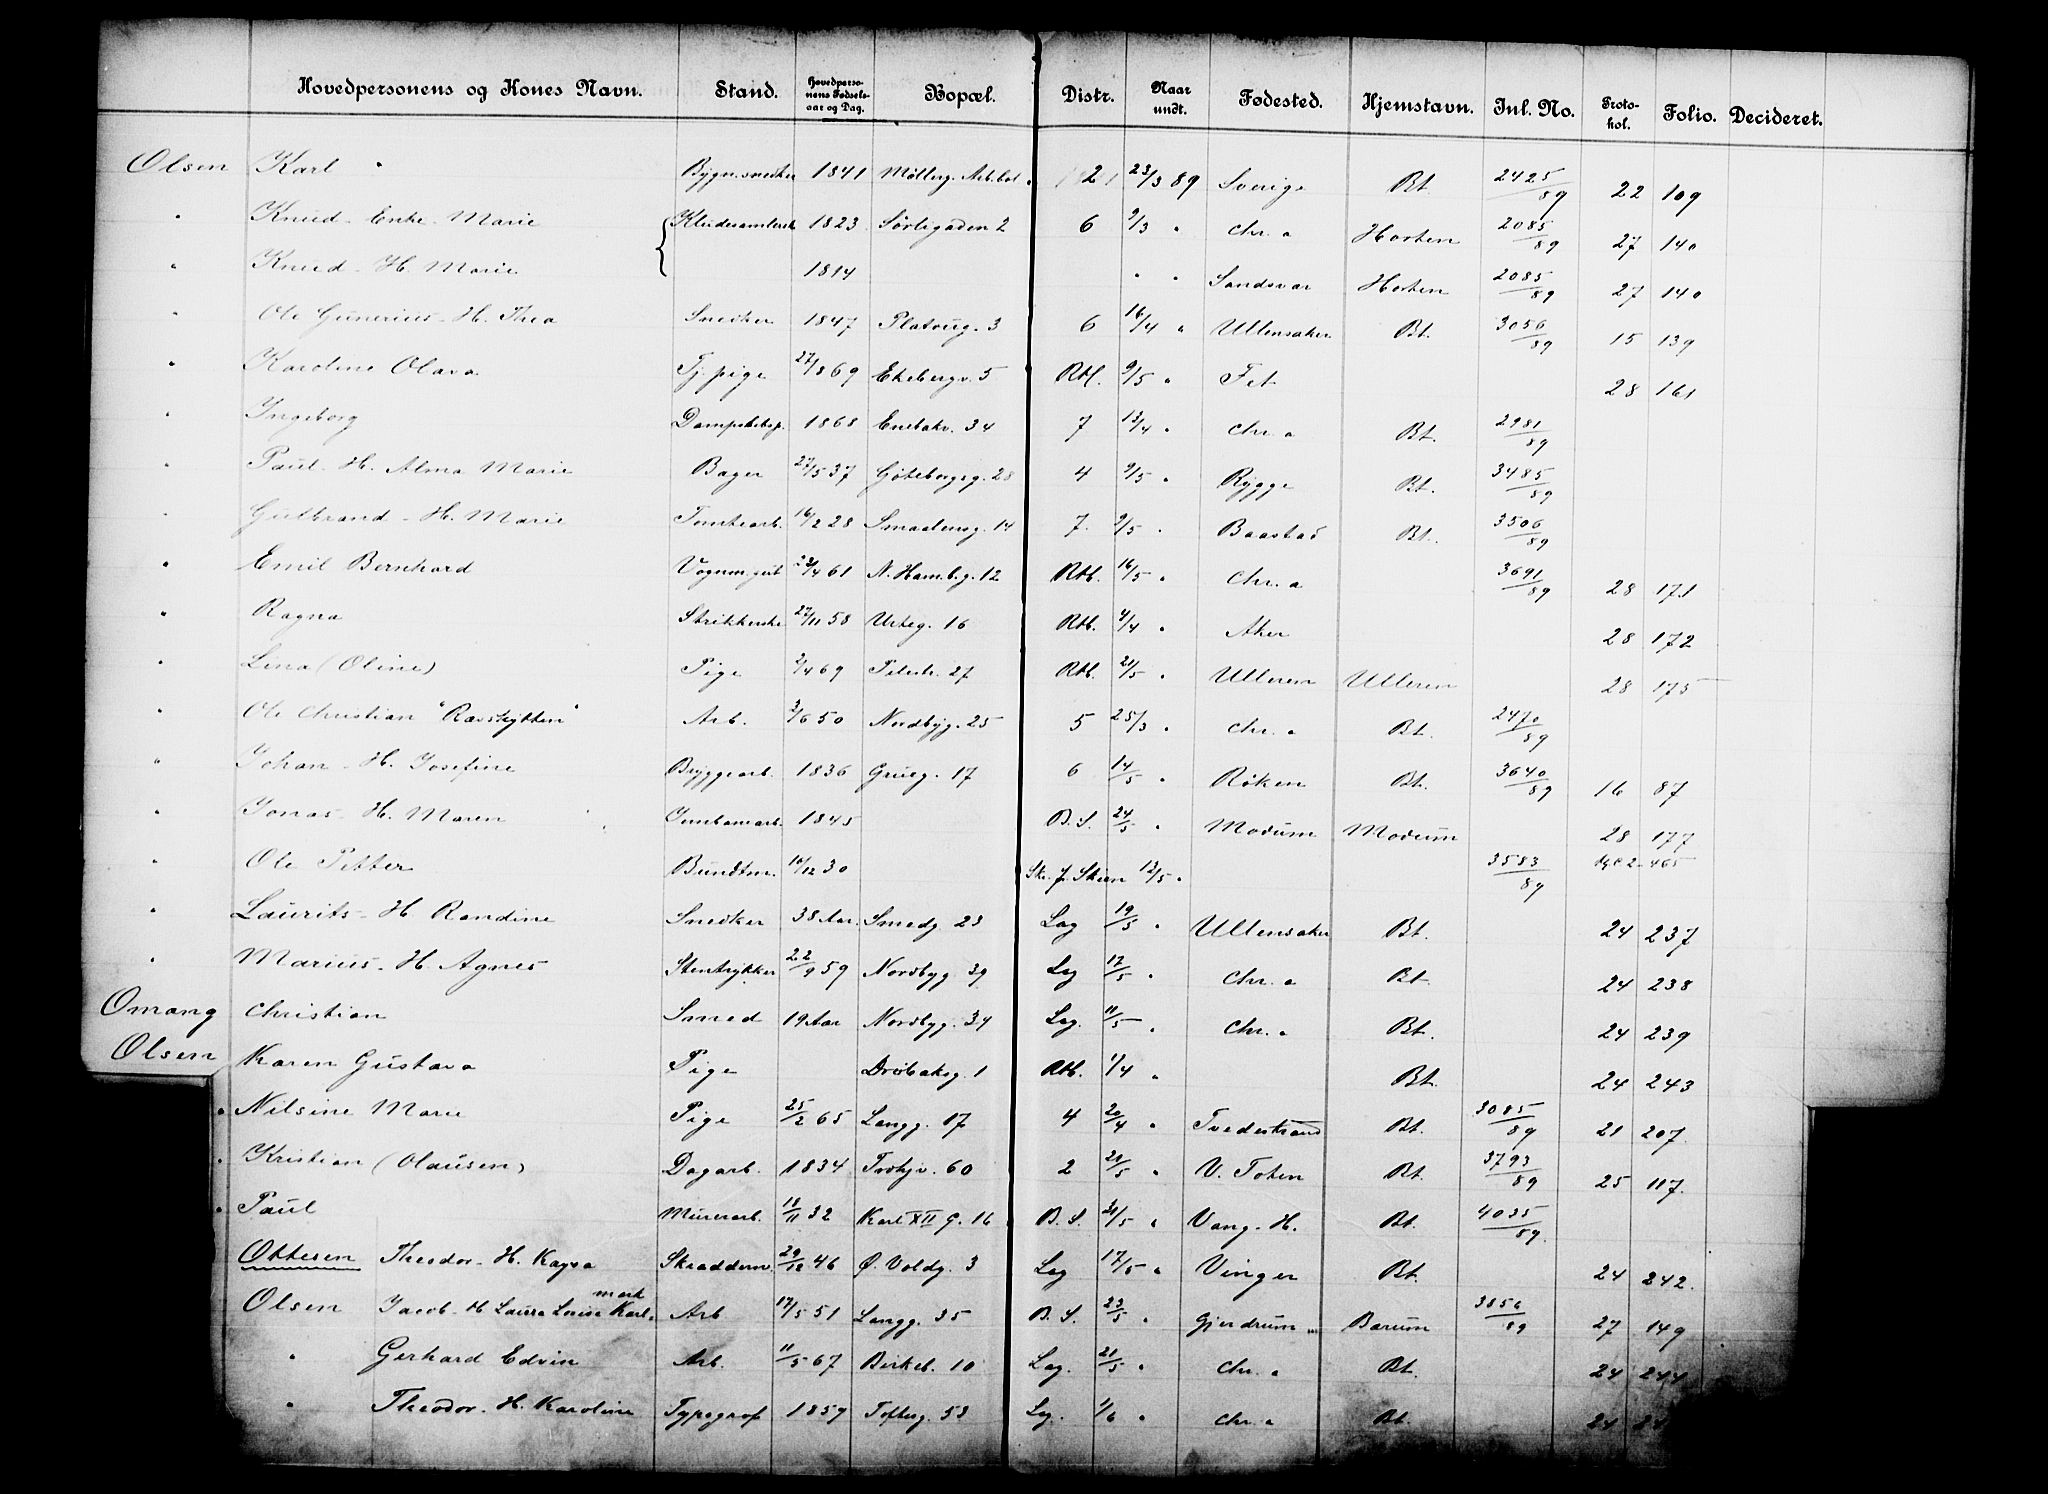 Hovedpersonens og Kones Navn. Stand. Hovedpersonens Fødselsaar og Dag. Bopæl. Distr. Naar undt. Fødested. Hjemstavn. Inl. No. Protokol. Folio. Decideret.
Olsen Karl " 1841 Møllerg. Arb.bol. 2 23/3 89 Sverige Bt. 2425/89 22 109
" Knud - Enke - Marie Kludesamlersk 1823 Sørligaden 2 6 9/3 " Chr.a Horten 2085/89 27 140
" Knud - H. Marie 1814 " " Sandsvær Horten 2085/89 27 140
" Ole Gunerius - H. Thea Snedker 1847 Platoug. 3 6 16/4 " Ullensaker Bt. 3056/89 15 139
" Karoline Olava Tj.pige 27/8 69 Ekebergv. 5 Rbl. 9/5 " Fet 28 161
" Ingeborg 1868 Enebakv. 34 7 13/4 " Chr.a Bt. 2981/89
" Paul - H. Alma Marie Bager 27/5 37 Gøteborgsg. 28 4 9/5 " Rygge Bt. 3485/89
" Gulbrand - H. Marie Tomtearb. 16/2 28 Smaalensg. 14 7. 9/5 " Baastad Bt. 3506/89
" Emil Bernhard 61 N. Hamb.g. 12 Rbl. 16/5 " Chr.a 3691/89 28 171
" Ragna Strikkerske 27/11 58 Urteg. 16 Rbl. 4/4 " Aker 28 172
" Lina (Oline) Pige 2/4 69 Pilestr. 27 Rbl. 21/5 " Ulleren Ulleren 28 175
" Ole Christian "Ravskytten" Arb. 3/6 50 Nordbyg. 25 5 25/3 " Chr.a Bt. 2470/89
" Johan - H. Josefine Bryggearb. 1836 Grueg. 17 6 14/5 " Røken Bt. 3640/89 16 87
" Jonas - H. Maren Jernbanearb. 1845 B.S. 24/5 " Modum Modum 28 177
" Ole Petter Bundtm. 10/12 30 Skr. f. Skien 13/5 " 3583/89 465
" Laurits - H. Randine Snedker 38 Aar. Smedg. 23 Lag 19/5 " Ullensaker Bt. 24 237
" Marius - H. Agnes Stentrykker 22/9 59 Nordbyg. 39 Lag 17/5 " Chr.a Bt. 24 238
Omang Christian Smed 19 Aar Nordbyg. 34 Lag. 11/5 " Chr.a Bt. 24 239
Olsen Karen Gustava Pige Drøbaksg. 1 Rbl. 1/4 " Bt. 24 243
" Nilsine Marie Pige 25/2 65 Langg. 17 4 20/4 " Tvedestrand Bt. 3085/89 21 207
" Kristian (Olausen) Dagarb. 1834 Trohjv. 60 2 21/5 " V. Toten Bt. 3793/89 25 117.
" Paul Murerarb. 18/11 32 Karl XII G. 16 B.S. 31/5 " Vang. H. Bt. 4035/89
Ottesen Theodor - H. Kaysa Skrædderm. 29/12 46 Ø. Voldg. 3 Lag 17/5 " Vinger Bt. 24 242.
mark
Olsen Jacob - H Laura Louise Karl. Arb 17/5 51 Langg. 35 B.S. 23/5 " Gjerdrum Bærum 3856/89 27 149
" Gerhard Edvin Arb. 11/5 67 Birkeb. 10 Lag. 21/5 " Chr.a Bt. 24 244
" Theodor - H. Karoline Typograf 1859 Tofteg. 53 Lag. 1/6 " Chr.a Bt 24